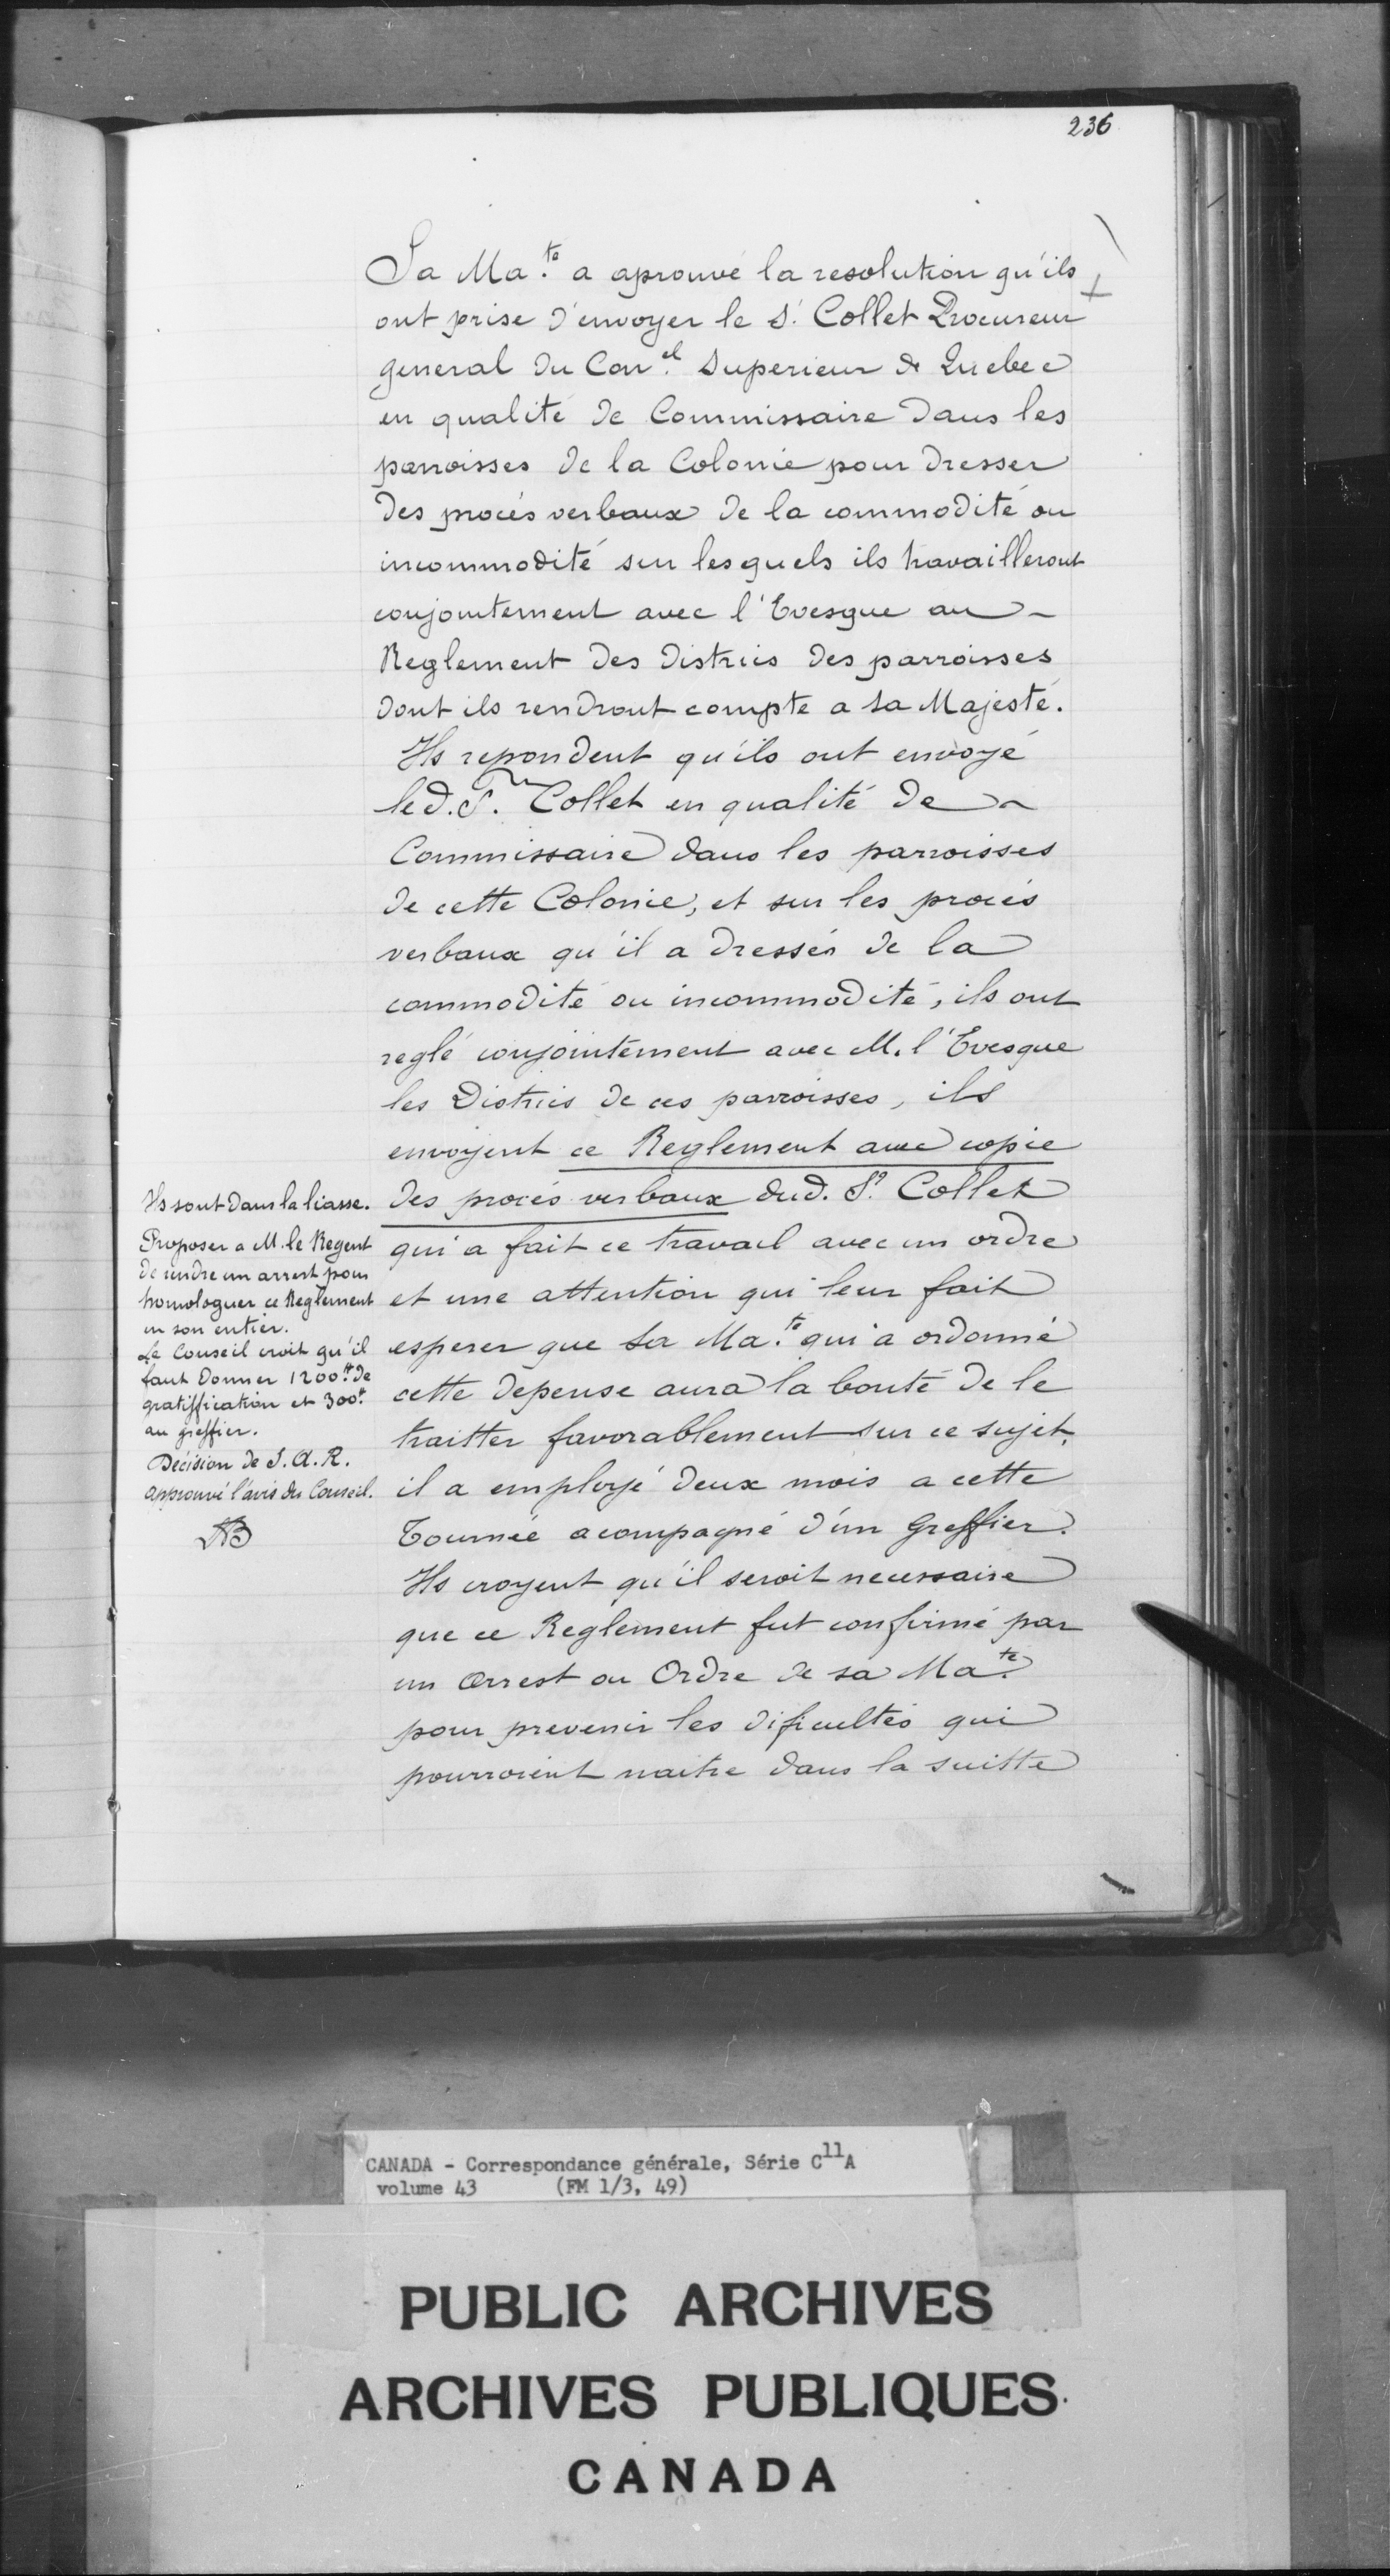 236
Sa Ma.té a aprouvé la resolution qu'ils
ont prise d'envoyer le S. Collet Procureur
general du Con.el Superieur de Quebec
en qualité de Commissaire dans les
parroisses de la Colonie pour dresser
des procés verbaux de la commodité ou
incommodité sur lesquels ils travailleront
conjointement avec l'Evesque au
Reglement des Districs des parroisses
dont ils rendront compte a sa Majesté.
Ils repondent qu'ils ont envoyé
led. Sr. Collet en qualité de
Commissaire dans les parroisses
de cette Colonie, et sur les procés
verbaux qu'il a dressés de la
commodité ou incommodité, ils ont
reglé conjointement avec M. l'Evesque
les Districs de ces parroisses, ils
envoyent ce Reglement avec copie
des procés verbaux dud. Sr. Collet
qui a fait ce travail avec un ordre
et une attention qui leur fait
esperer que Sa Ma.té qui a ordonné
cette depense aura la bonté de le
traitter favorablement sur ce sujet,
il a employé deux mois a cette
Tournée acompagné d'un Greffier.
Ils croyent qu'il seroit necessaire
que ce Reglement fut confirmé par
un Arrest ou Ordre de sa Ma.té
pour prevenir les dificultés qui
pourroient naitre dans la suitte
Ils sont dans la liasse.
Proposer a M. le Regent
de rendre un arrest pour
homologuer ce Reglement
en son entier.
Le Conseil croit qu'il
faut donner 1200tt de
gratiffication et 300tt
au greffier.
Décision de S. A. R.
approuvé l'avis du Conseil.
CANADA - Correspondance générale, Série C11A
volume 43 (FM 1/3, 49)
PUBLIC ARCHIVES
ARCHIVES PUBLIQUES
CANADA